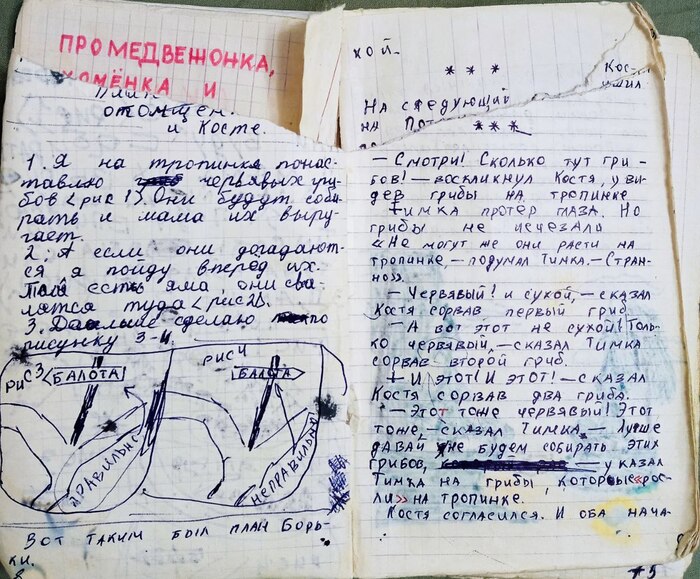 ПРО МЕДВЕЖОНКА,
ХОМЁНКА И
отомщен.
и Косте.
1. Я на тропинке понас-
тавлю червявых гри-
бов <рис 1> Они будут соби-
рать и мама их выру-
гает.
2. А если они догадают-
ся я пойду вперёд их.
Там есть яма, они сва-
лятся туда <рис 2>.
3. Дальше сделаю по
рисунку 3-4.
рис 3
БАЛОТА
ПРАВИЛЬНО
рис 4
БАЛОТА
НЕПРАВИЛЬНО
Вот таким был план Борь-
ки.
8
хой.
* * *
На следующий
на
* * *
— Смотри! Сколько тут гри-
бов! — воскликнул Костя, уви-
дев грибы на тропинке
Тимка протёр глаза. Но
грибы не исчезало
«Не могут же они расти на
тропинке — подумал Тимка. — Стран-
но».
— Червявый! и сухой, — сказал
Костя сорвав первый гриб.
— А вот этот не сухой! Толь-
ко червявый. — сказал Тимка
сорвав второй гриб.
И этот! И этот! — сказал
Костя сорвав два гриба.
— Этот тоже червявый! Этот
тоже, — сказал Тимка. — Лучше
давай не будем собирать этих
грибов, — указал
Тимка на грибы, которые «рос-
ли» на тропинке.
Костя согласился. И оба нача-
5